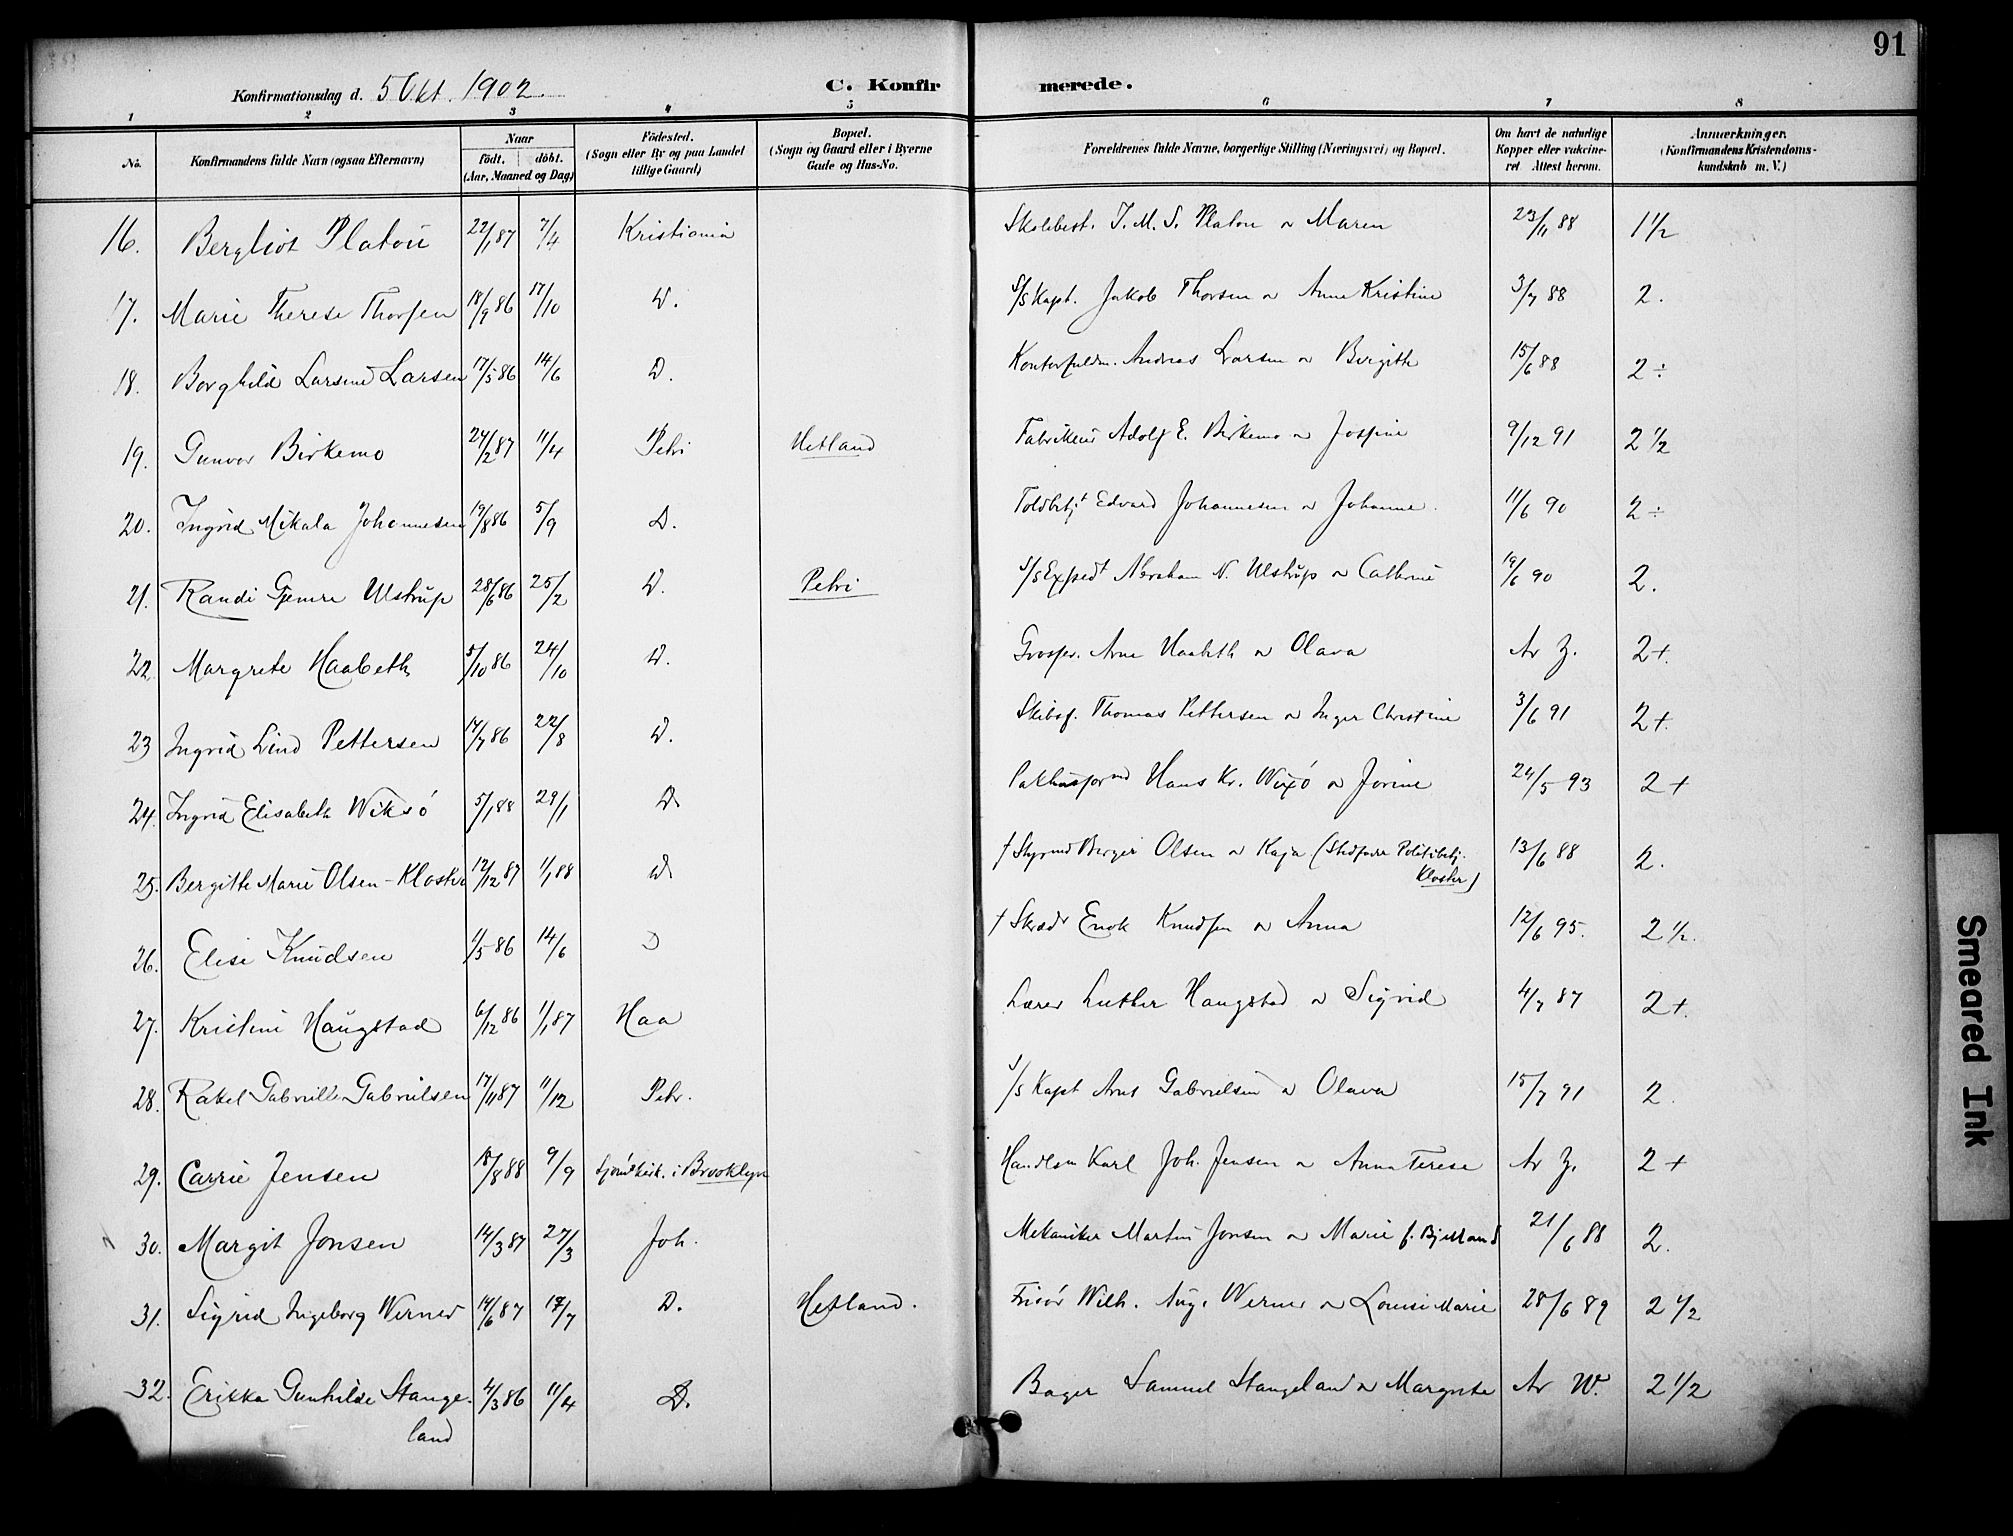 91
Konfirmationsdag d. 5 Okt. 1902.
C. Konfirmerede.
1 2 3 4 5 6 7 8
No. Konfirmandens fulde Navn (ogsaa Efternavn) Naar født. døbt. (Aar, Maaned og Dag) Fødested. (Sogn eller By og paa Landet tillige Gaard) Bopæl. (Sogn og Gaard eller i Byerne Gade og Hus-No. Forældrenes fulde Navne, borgerlige Stilling (Næringsvei) og Bopæl. Om havt de naturlige Kopper eller vakcineret Attest herom. Anmærkninger. (Konfirmandens Kristendomskundskab m. V.)
16. Bergliot Platou 22/1 87 7/4 Kristiania Skolebest. J. M. S. Platou o Maren 23/11 88 1 1/2
17. Marie Therese Thorsen 18/9 86 17/10 D. S/S Kapt. Jakob Thorsen o Anne Kristine 3/7 88 2.
18. Borghild Larsine Larsen 17/5 86 14/6 D. Kontorfuldm. Andreas Larsen o Bergithe 15/6 88 2 ÷
19. Gunvor Birkemo 24/2 87 11/4 Petri Hetland Fabrikeier Adolf E. Birkemo o Josefine 9/12 91 2 1/2
20. Ingrid Mikala Johannesen 19/8 86 5/9 D. Toldbetjt Edvard Johannesen o Johanne. 11/6 90 2 ÷
21. Randi Gjemre Ulstrup 28/6 86 25/2 D. Petri S/S Expedt Abraham N. Ulstrup o Cathrine 19/6 90 2.
22. Margrete Haabeth 5/10 86 24/10 D. Grosser. Arne Haabeth o Olava Av Z. 2+.
23 Ingrid Lind Pettersen 17/7 86 22/8 D. Skibsf. Thomas Pettersen o Inger Christine 3/6 91 2+.
24. Ingrid Elisabeth Wiksö 5/1 88 29/1 D. Pakhusformd Hans Kr. Wixö o Jorine 24/5 93 2+
25. Bergithe Marie Olsen-Kloster 12/12 87 1/1 88 D. † Styrmd Berger Olsen o Kaja (Stedfader Politibetj. Kloster) 13/6 88 2.
26. Elise Knudsen 1/5 86 14/6 D † Skrædr Enok Knudsen o Anna 12/6 95. 2 1/2.
27. Kristine Haugstad 6/12 86 1/1 87 Haa Lærer Luther Haugstad o Sigrid 4/7 87 2+.
28. Rakel Gabrielle Gabrielsen 17/11 87 11/12 Petr. S/S Kapt Arnt Gabrielsen o Olava 15/7 91 2.
29. Carrie Jensen 18/8 88 9/9 Sjømdkirk. i Brooklyn Handlsm Karl Joh. Jensen o Anna Terese Av Z. 2+
30. Margit Jonsen 14/3 87 27/3 Joh. Mekaniker Martin Jonsen o Marie f. Bjelland 21/6 88 2.
31. Sigrid Ingeborg Werner 14/6 87 17/7 D. Hetland. Frisør Wilh. Aug. Werner o Louise Marie 28/6 89 2 1/2
32. Erikka Gunhilde Stangeland 4/3 86 11/4 D. Bager Samuel Stangeland o Margrete Av W. 2 1/2
Smeared Ink